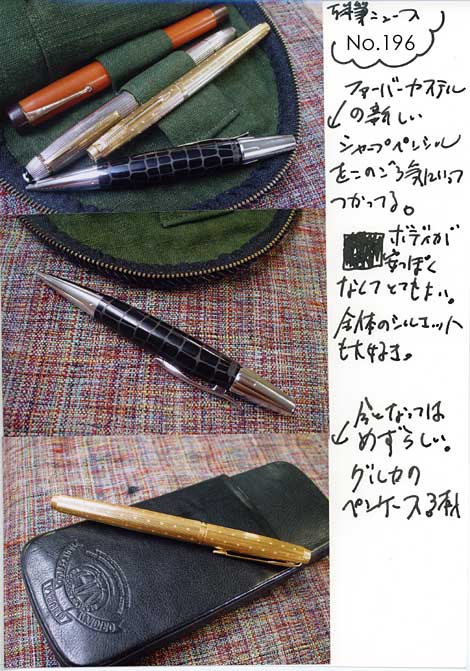 万年筆ニュース
No.196
ファーバーカステル
の新しい
シャープペンシル
をこのごろ気にいって
つかってる。
ボディが
安っぽく
なくてとてもよい。
全体のシルエット
も大好き。
今となっては
めずらしい。
グルカの
ペンケース
ORIGINAL